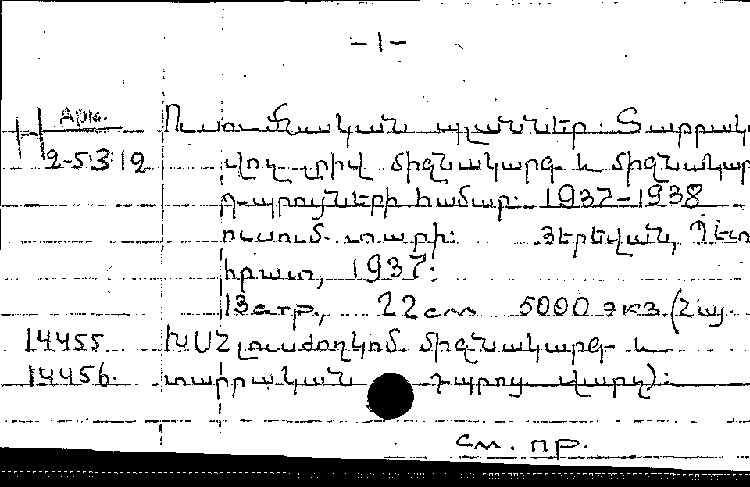 -1-
Н Арм. Ուսումնական պլաններ: Տարրակ
2-5312 վոչ լրիվ միջնակարգ և միջնակար
դպրոցների համար: 1937-1938
ուսում. տարի: Յերեվան, Պետ
հրատ, 1937:
13стр., 22см 5000 экз. (Հայ.
14455 ԽՍՀ լուսժողկոմ. միջնակարգ և
14456. տարրական դպրոց. վարչ):
см. пр.